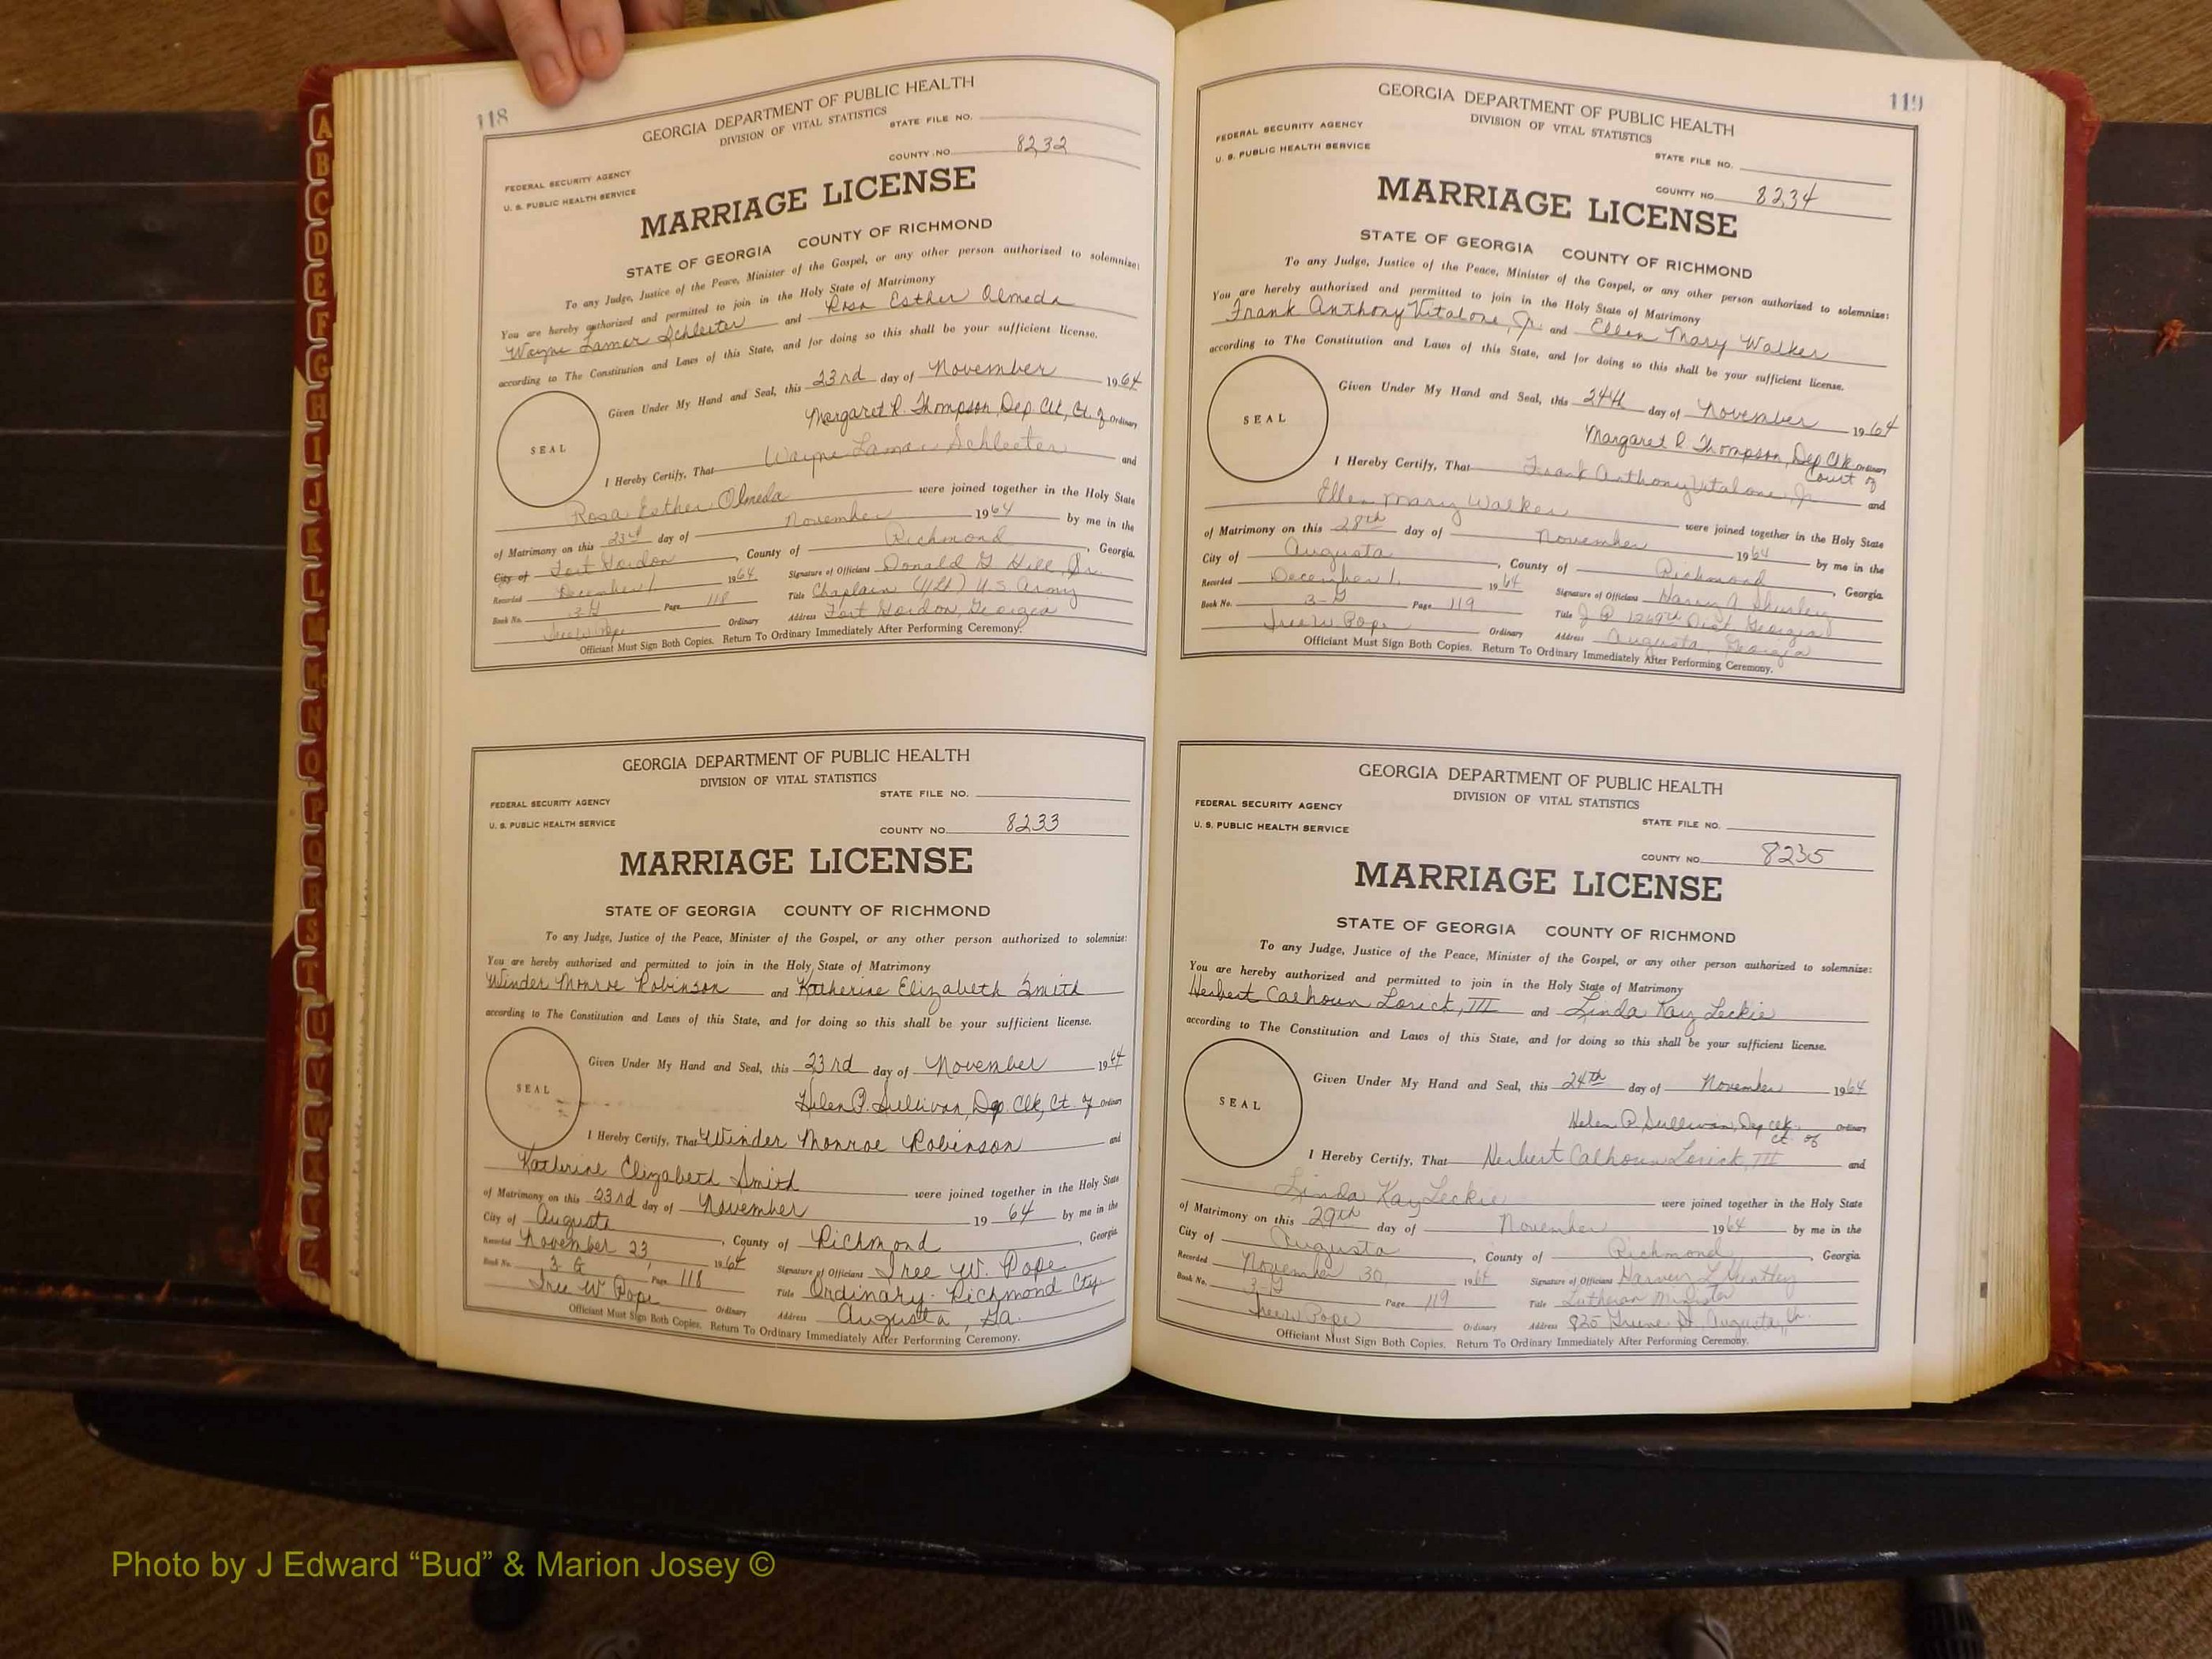 118
GEORGIA DEPARTMENT OF PUBLIC HEALTH
DIVISION OF VITAL STATISTICS
STATE FILE NO.
COUNTY NO. 8232
FEDERAL SECURITY AGENCY
U. S. PUBLIC HEALTH SERVICE
MARRIAGE LICENSE
STATE OF GEORGIA COUNTY OF RICHMOND
To any Judge, Justice of the Peace, Minister of the Gospel, or any other person authorized to solemnize:
You are hereby authorized and permitted to join in the Holy State of Matrimony
Wayne Lamar Schleeter and Rosa Esther Olmeda
according to The Constitution and Laws of this State, and for doing so this shall be your sufficient license.
Given Under My Hand and Seal, this 23rd day of November 1964
Margaret R. Thompson, Dep Clk, Ct. of Ordinary
SEAL
I Hereby Certify, That Wayne Lamar Schleeter and
Rosa Esther Olmeda were joined together in the Holy State
of Matrimony on this 23rd day of November 1964 by me in the
City of Fort Gordon, County of Richmond, Georgia.
Recorded December 1 1964 Signature of Officiant Donald G. Hill, Jr.
Book No. 3-G Page 118 Title Chaplain (1/Lt) U.S. Army
Iree W. Pope Ordinary Address Fort Gordon, Georgia
Officiant Must Sign Both Copies. Return To Ordinary Immediately After Performing Ceremony.
GEORGIA DEPARTMENT OF PUBLIC HEALTH
DIVISION OF VITAL STATISTICS
STATE FILE NO.
FEDERAL SECURITY AGENCY
U. S. PUBLIC HEALTH SERVICE
COUNTY NO. 8233
MARRIAGE LICENSE
STATE OF GEORGIA COUNTY OF RICHMOND
To any Judge, Justice of the Peace, Minister of the Gospel, or any other person authorized to solemnize:
You are hereby authorized and permitted to join in the Holy State of Matrimony
Winder Monroe Robinson and Katherine Elizabeth Smith
according to The Constitution and Laws of this State, and for doing so this shall be your sufficient license.
Given Under My Hand and Seal, this 23rd day of November 1964
SEAL
Helen P. Sullivan, Dep. Clk, Ct. of Ordinary
I Hereby Certify, That Winder Monroe Robinson and
Katherine Elizabeth Smith were joined together in the Holy State
of Matrimony on this 23rd day of November 19 64 by me in the
City of Augusta, County of Richmond, Georgia.
Recorded November 23, 1964 Signature of Officiant Iree W. Pope
Book No. 3 G Page 118 Title Ordinary- Richmond Cty
Iree W. Pope Ordinary Address Augusta, Ga.
Officiant Must Sign Both Copies. Return To Ordinary Immediately After Performing Ceremony.
119
GEORGIA DEPARTMENT OF PUBLIC HEALTH
DIVISION OF VITAL STATISTICS
FEDERAL SECURITY AGENCY
U. S. PUBLIC HEALTH SERVICE
STATE FILE NO.
COUNTY NO. 8234
MARRIAGE LICENSE
STATE OF GEORGIA COUNTY OF RICHMOND
To any Judge, Justice of the Peace, Minister of the Gospel, or any other person authorized to solemnize:
You are hereby authorized and permitted to join in the Holy State of Matrimony
Frank Anthony Vitalone, Jr. and Ellen Mary Walker
according to The Constitution and Laws of this State, and for doing so this shall be your sufficient license.
Given Under My Hand and Seal, this 24th day of November 1964
SEAL
Margaret R. Thompson, Dep Clk Ordinary
Court of
I Hereby Certify, That Frank Anthony Vitalone, Jr. and
Ellen Mary Walker were joined together in the Holy State
of Matrimony on this 28th day of November 1964 by me in the
City of Augusta, County of Richmond, Georgia.
Recorded December 1, 1964 Signature of Officiant
Book No. 3-G Page 119 Title J. P. 1269th Dist Georgia
Iree W. Pope Ordinary Address Augusta, Georgia
Officiant Must Sign Both Copies. Return To Ordinary Immediately After Performing Ceremony.
GEORGIA DEPARTMENT OF PUBLIC HEALTH
DIVISION OF VITAL STATISTICS
FEDERAL SECURITY AGENCY
U. S. PUBLIC HEALTH SERVICE
STATE FILE NO.
COUNTY NO. 8235
MARRIAGE LICENSE
STATE OF GEORGIA COUNTY OF RICHMOND
To any Judge, Justice of the Peace, Minister of the Gospel, or any other person authorized to solemnize:
You are hereby authorized and permitted to join in the Holy State of Matrimony
Herbert Calhoun Lorick, III and Linda Kay Leckie
according to The Constitution and Laws of this State, and for doing so this shall be your sufficient license.
Given Under My Hand and Seal, this 24th day of November 1964
SEAL
Helen P. Sullivan, Dep Clk Ordinary
Ct. of
I Hereby Certify, That Herbert Calhoun Lorick, III and
Linda Kay Leckie were joined together in the Holy State
of Matrimony on this 29th day of November 1964 by me in the
City of Augusta, County of Richmond, Georgia.
Recorded November 30, 1964 Signature of Officiant Harvey L. Huntley
Book No. 3-G Page 119 Title Lutheran Minister
Iree W. Pope Ordinary Address 825 Greene St. Augusta, Ga.
Officiant Must Sign Both Copies. Return To Ordinary Immediately After Performing Ceremony.
A
B
C
D
E
F
G
H
I
J
K
L
M
N
O
P
Q
R
S
T
U
V
W
X
Y
Z
Photo by J Edward “Bud” & Marion Josey ©